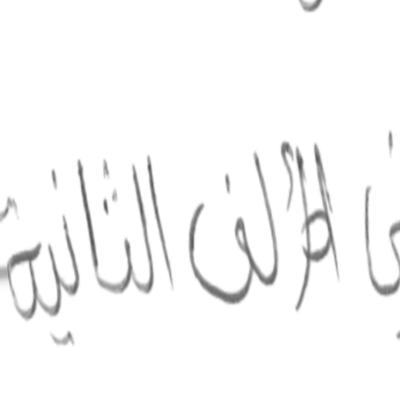 الألف الثانية